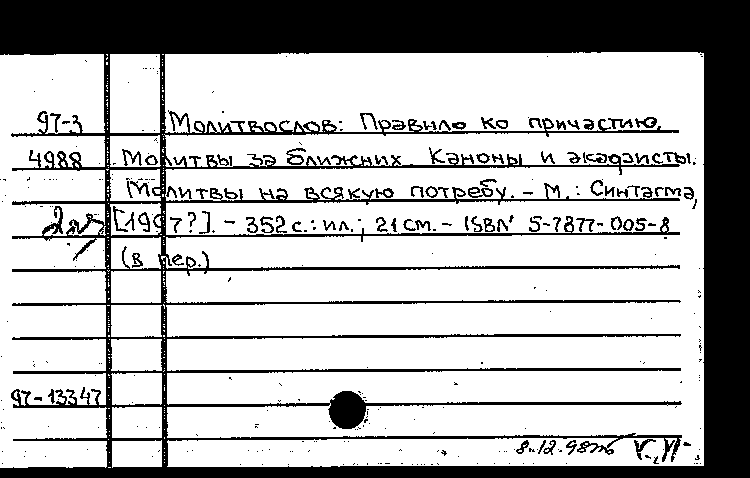 97-3 Молитвослов: Правило ко причастию.
4988 Молитвы за ближних. Каноны и акафисты.
Молитвы на всякую потребу. - М.: Синтагма,
[1997?]. - 352 с.: ил.; 21 см. - ISBN 5-7877-005-8
(в пер.)
97-13347
8.12.98